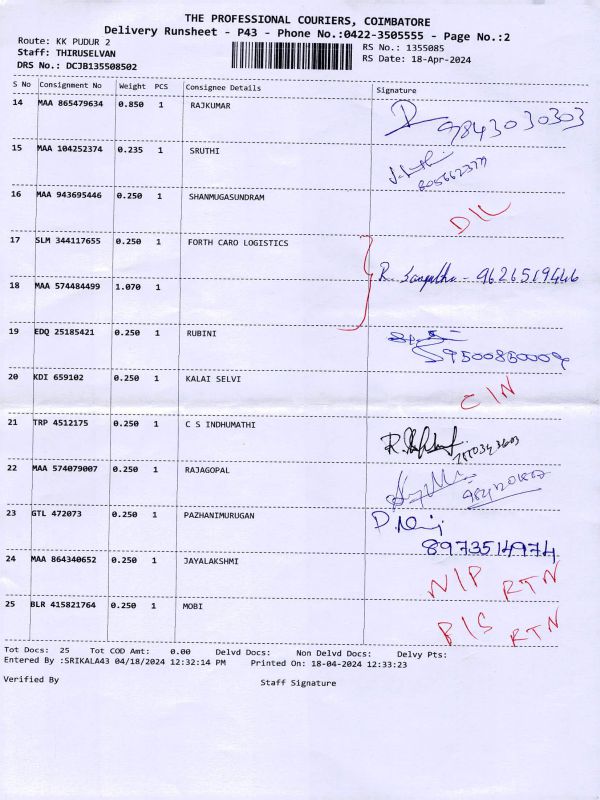 THE PROFESSIONAL COURIERS, COIMBATORE
Delivery Runsheet - P43 - Phone No.:0422-3505555 - Page No.:2
Route: KK PUDUR 2
RS No.: 1355085
Staff: THIRUSELVAN
RS Date: 18-Apr-2024
DRS No.: DCJB135508502
S No Consignment No Weight PCS Consignee Details Signature
14 MAA 865479634 0.850 1 RAJKUMAR
9843030303
15 MAA 104252374 0.235 1 SRUTHI
16 MAA 943695446 0.250 1 SHANMUGASUNDRAM
D/L
17 SLM 344117655 0.250 1 FORTH CARO LOGISTICS
R. - 9626519446
18 MAA 574484499 1.070 1
19 EDQ 25185421 0.250 1 RUBINI
20 KDI 659102 0.250 1 KALAI SELVI
C/N
21 TRP 4512175 0.250 1 C S INDHUMATHI
22 MAA 574079007 0.250 1 RAJAGOPAL
23 GTL 472073 0.250 1 PAZHANIMURUGAN
8973514974
24 MAA 864340652 0.250 1 JAYALAKSHMI
N/P RTN
25 BLR 415821764 0.250 1 MOBI
P/S RTN
Tot Docs: 25 Tot COD Amt: 0.00 Delvd Docs: Non Delvd Docs: Delvy Pts:
Entered By :SRIKALA43 04/18/2024 12:32:14 PM Printed On: 18-04-2024 12:33:23
Verified By Staff Signature